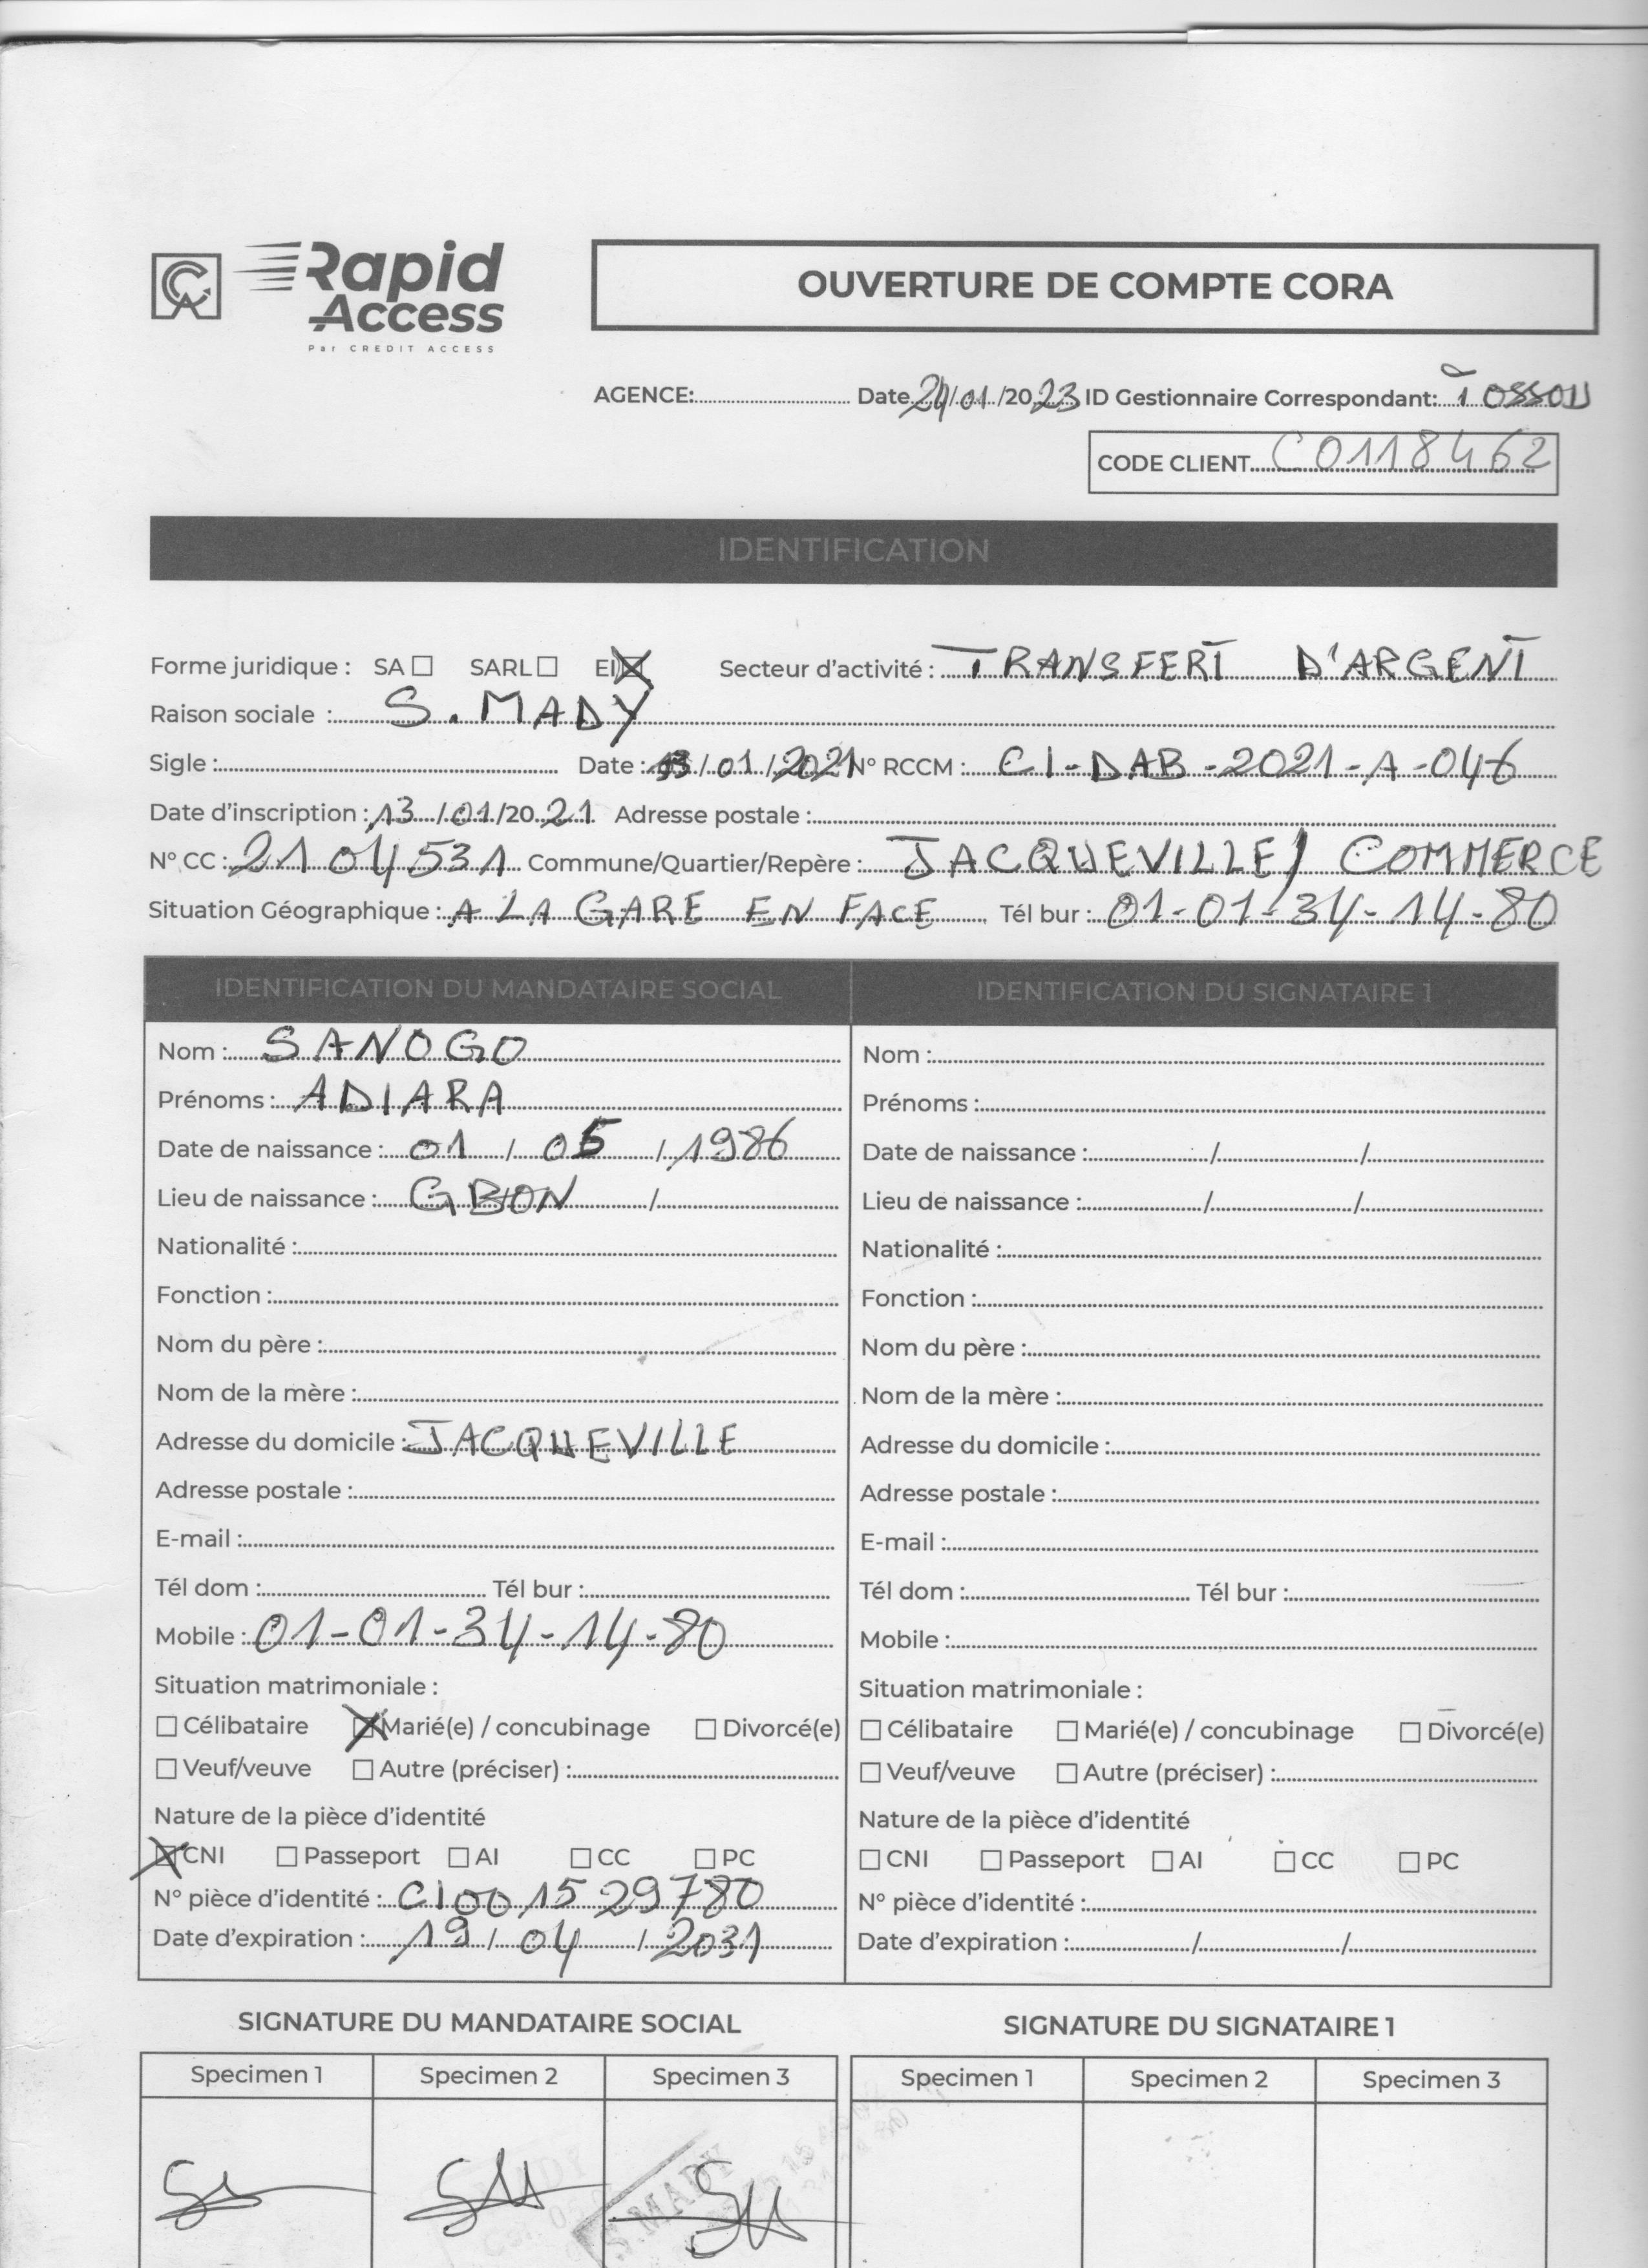 CA Rapid Access
Par CREDIT ACCESS
OUVERTURE DE COMPTE CORA
AGENCE:.......... Date 24/01/2023 ID Gestionnaire Correspondant: TOSSOU
CODE CLIENT C0118462
IDENTIFICATION
Forme juridique : SA ☐ SARL ☐ EI ☒ Secteur d'activité : TRANSFERT D'ARGENT
Raison sociale : S. MADY
Sigle : Date : 13/01/2021 N° RCCM : CI-DAB-2021-A-046
Date d'inscription : 13/01/2021 Adresse postale :
N° CC : 2104531 Commune/Quartier/Repère : JACQUEVILLE/ COMMERCE
Situation Géographique : A LA GARE EN FACE Tél bur : 01-01-34-14-80
IDENTIFICATION DU MANDATAIRE SOCIAL
Nom : SANOGO
Prénoms : ADIARA
Date de naissance : 01 / 05 / 1986
Lieu de naissance : GBON /
Nationalité :
Fonction :
Nom du père :
Nom de la mère :
Adresse du domicile : JACQUEVILLE
Adresse postale :
E-mail :
Tél dom : Tél bur :
Mobile : 01-01-34-14-80
Situation matrimoniale :
☐ Célibataire ☒ Marié(e) / concubinage ☐ Divorcé(e)
☐ Veuf/veuve ☐ Autre (préciser) :
Nature de la pièce d'identité
☒ CNI ☐ Passeport ☐ AI ☐ CC ☐ PC
N° pièce d'identité : CI001529780
Date d'expiration : 19 / 04 / 2031
IDENTIFICATION DU SIGNATAIRE 1
Nom :
Prénoms :
Date de naissance : / /
Lieu de naissance : / /
Nationalité :
Fonction :
Nom du père :
Nom de la mère :
Adresse du domicile :
Adresse postale :
E-mail :
Tél dom : Tél bur :
Mobile :
Situation matrimoniale :
☐ Célibataire ☐ Marié(e) / concubinage ☐ Divorcé(e)
☐ Veuf/veuve ☐ Autre (préciser) :
Nature de la pièce d'identité
☐ CNI ☐ Passeport ☐ AI ☐ CC ☐ PC
N° pièce d'identité :
Date d'expiration : / /
SIGNATURE DU MANDATAIRE SOCIAL
Specimen 1 Specimen 2 Specimen 3
S. MADY
SIGNATURE DU SIGNATAIRE 1
Specimen 1 Specimen 2 Specimen 3